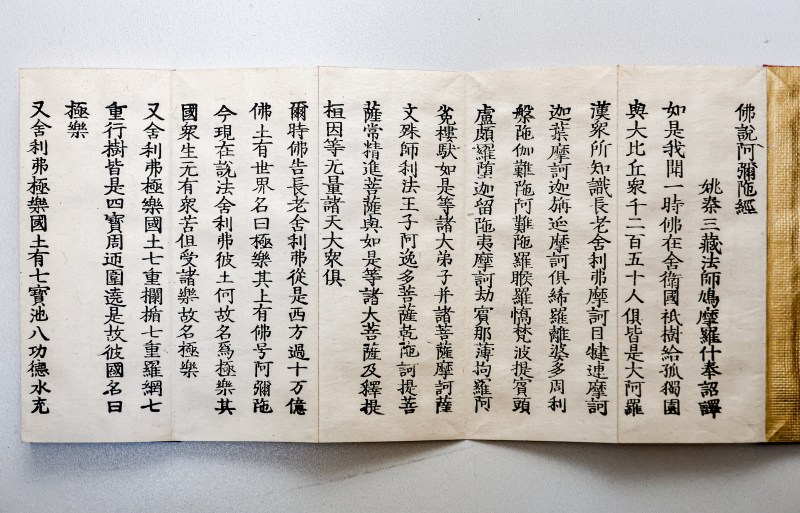 佛說阿彌陁經
姚秦三藏法師鳩摩羅什奉詔譯
如是我聞一時佛在舍衛國祇樹給孤獨園
與大比丘衆千二百五十人俱皆是大阿羅
漢衆所知識長老舍利弗摩訶目犍連摩訶
迦葉摩訶迦旃延摩訶俱絺羅離婆多周利
槃陁伽難陁阿難陁羅睺羅憍梵波提賓頭
盧頗羅墮迦留陁夷摩訶劫賓那薄拘羅阿
㝹樓馱如是等諸大弟子并諸菩薩摩訶薩
文殊師利法王子阿逸多菩薩乾陁訶提菩
薩常精進菩薩與如是等諸大菩薩及釋提
桓因等无量諸天大衆俱
爾時佛告長老舍利弗從是西方過十万億
佛土有世界名曰極樂其土有佛号阿彌陁
今現在說法舍利弗彼土何故名爲極樂其
國衆生无有衆苦但受諸樂故名極樂
又舍利弗極樂國土七重欄楯七重羅網七
重行樹皆是四寶周迊圍遶是故彼國名曰
極樂
又舍利弗極樂國土有七寶池八功德水充